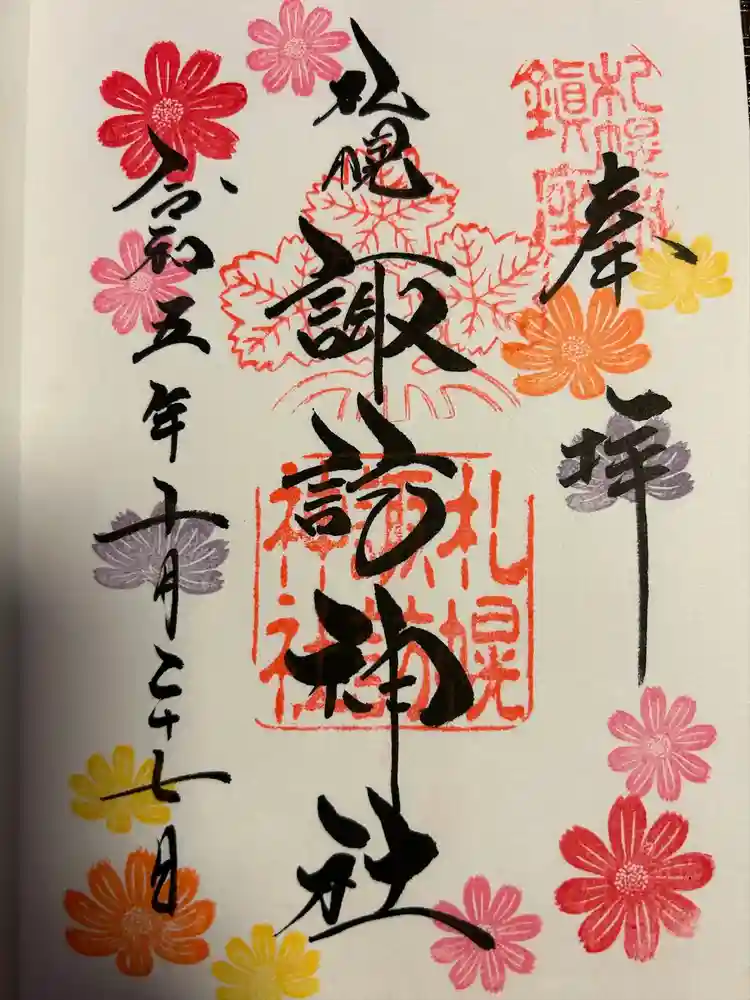 奉拝
札幌鎮座
札幌諏訪神社
札幌諏訪神社
令和五年十月二十七日